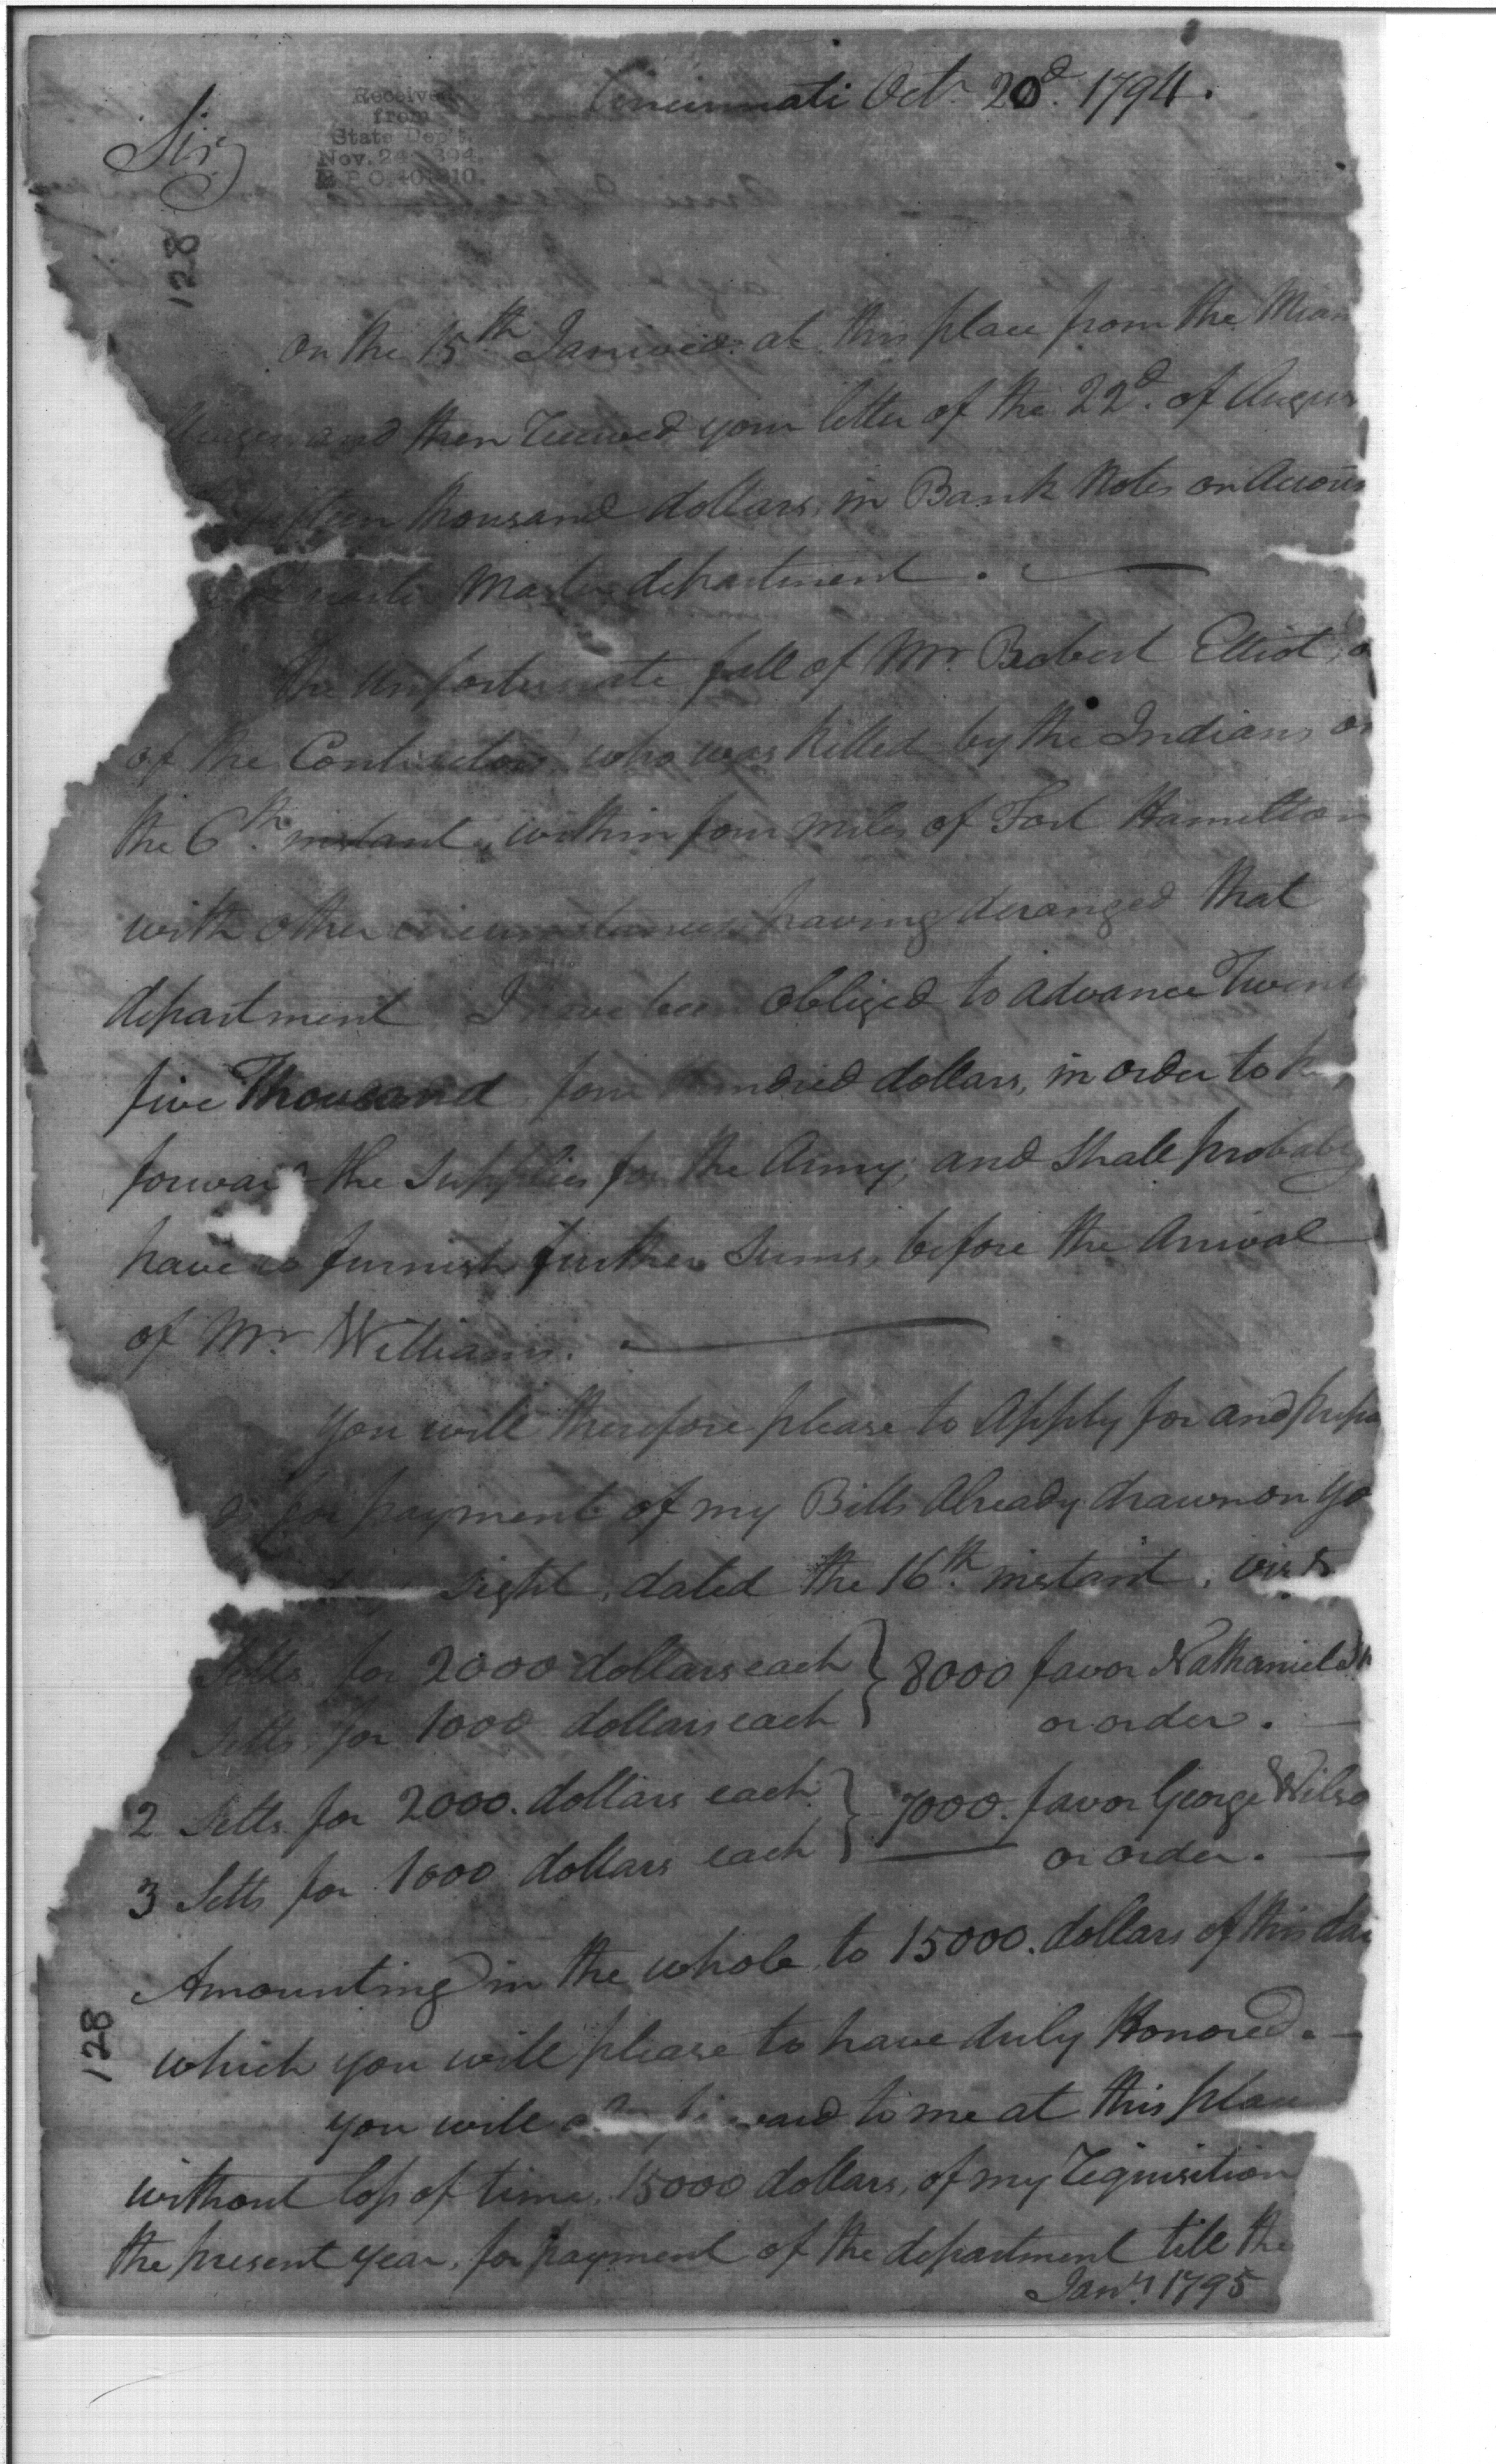 Cincinnati Octr. 20d. 1794.
Sir,
Received
from
State Dep't.
Nov. 24 1894
128
on the 15th I arrived at this place from the Miam
and then received your letter of the 22d. of Augus
thousand dollars, in Bank Notes on Accoun
Master department.
The unfortunate fall of Mr. Robert Elliot, o
of the Contractors who was killed by the Indians on
the 6th. instant, within four miles of Fort Hamilton
with other circumstances having deranged that
department I have been obliged to advance Twent
five Thousand four hundred dollars, in order to
forward the supplies for the Army, and shall probably
have to furnish further sums, before the Arrival
of Mr. Williams.
You will therefore please to Apply for and prepa
for payment of my Bills Already drawn on yo
sight, dated the 16th. instant, vizt
Setts, for 2000 dollars each } 8000 favor Nathaniel
Setts, for 1000 dollars each or order.
2 Setts for 2000. dollars each } 7000. favor George Wilso
3 Setts for 1000 dollars each or order.
Amounting in the whole, to 15000. dollars of this
which you will please to have duly Honored.
You will to me at this place
without loss of time, 15000 dollars, of my requisition
the present year, for payment of the department till the
Jany. 1795
128